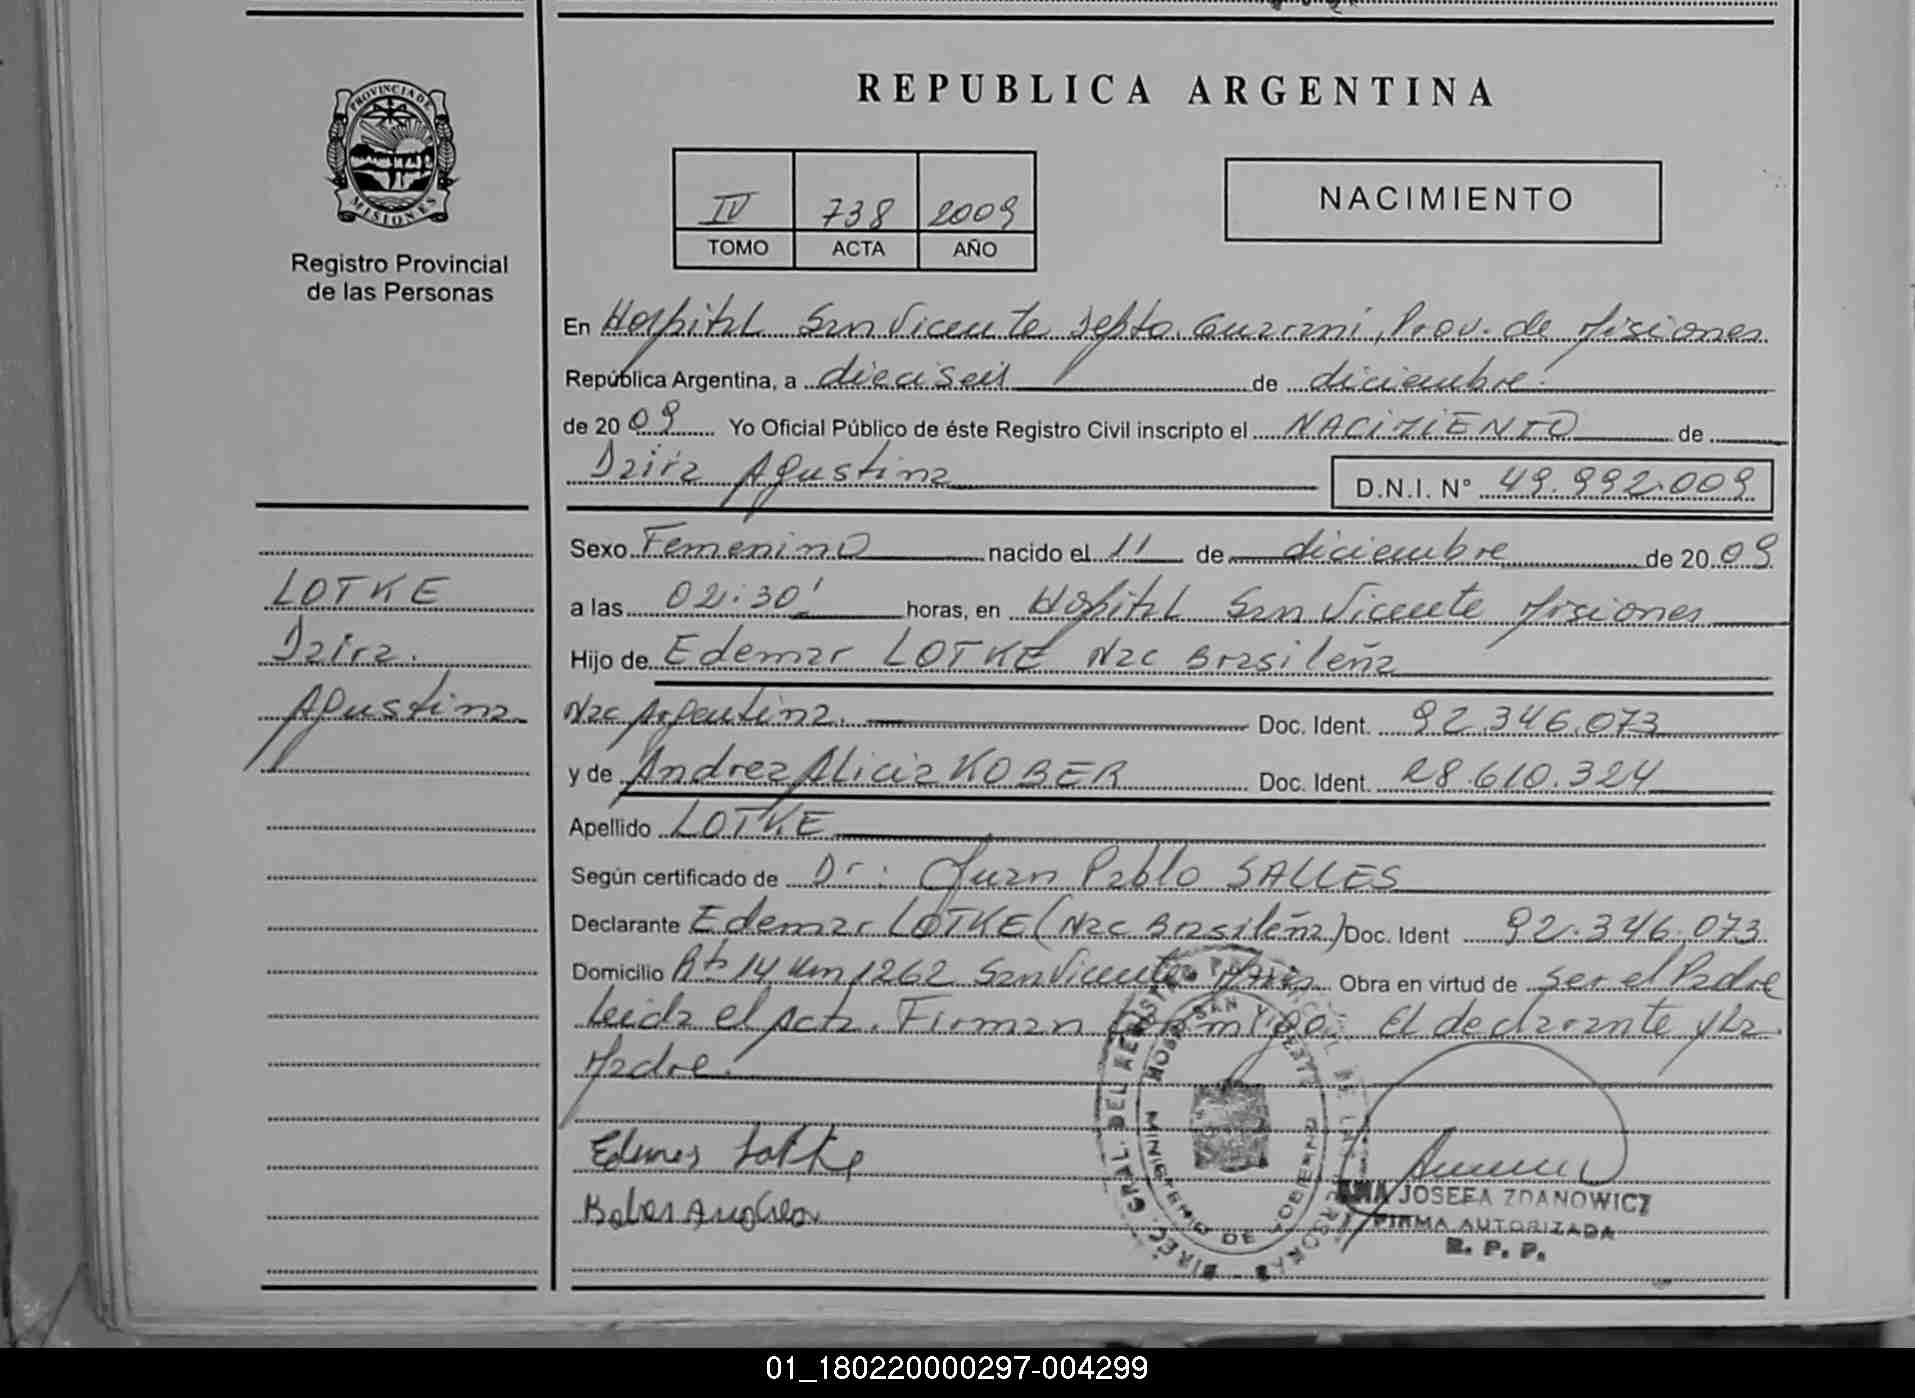 REPUBLICA ARGENTINA
PROVINCIA DE
MISIONES
Registro Provincial
de las Personas
IV 738 2009
TOMO ACTA AÑO
NACIMIENTO
En Hospital San Vicente Depto. Guarani, Prov. de Misiones
República Argentina, a dieciseis de diciembre
de 2009 Yo Oficial Público de éste Registro Civil inscripto el NACIMIENTO de
Daira Agustina
D.N.I. N° 49.992.009
Sexo Femenino nacido el 11 de diciembre de 2009
a las 02:30' horas, en Hospital San Vicente Misiones
Hijo de Edemar LOTKE Nac Brasileña
Nac Argentina. Doc. Ident. 92.346.073
y de Andrea Alicia KOBER Doc. Ident. 28.610.324
Apellido LOTKE
Según certificado de Dr: Juan Pablo SALLES
Declarante Edemar LOTKE (Nac Brasileña) Doc. Ident 92.346.073
Domicilio Rta 14 Km 1262 San Vicente Mnes Obra en virtud de ser el Padre
Leida el Acta. Firman Conmigo El declarante y La
Madre.
LOTKE
Daira.
Agustina
Lotke
Kober Andrea
DIREC. GRAL. DEL REGISTRO PROVINCIAL DE LAS PERSONAS
HOSP. SAN VICENTE
MINISTERIO DE GOBIERNO
ANA JOSEFA ZDANOWICZ
FIRMA AUTORIZADA
R. P. P.
01_180220000297-004299